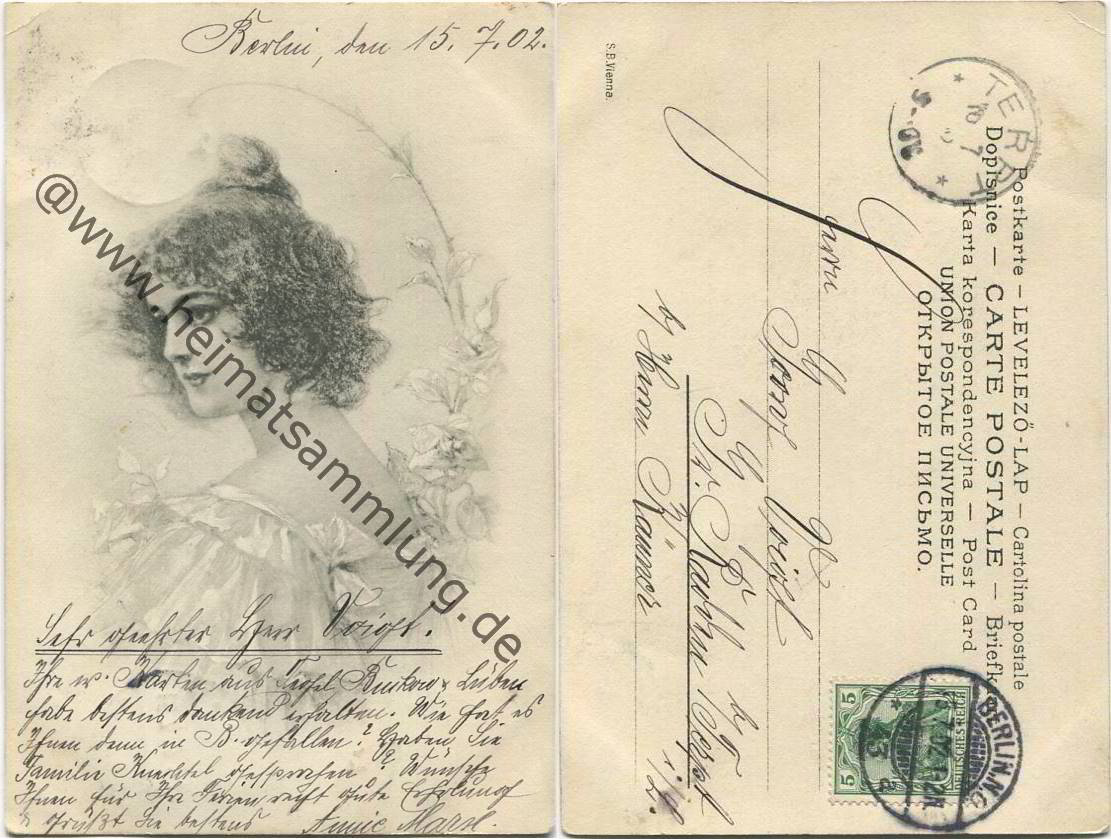 Berlin, den 15. 7. 02.
@www.heimatsammlung.de
Sehr geehrter Herr Voigt.
Ihre w. Karten aus Buckow & Lübben
habe bestens dankend erhalten. Wie hat es
Ihnen denn in B. gefallen? Haben Sie
Familie Knechtel gesprochen? Wünsche
Ihnen für Ihre Ferien recht gute Erholung
& grüßt Sie bestens Annie
S.B.Vienna.
Postkarte – LEVELEZŐ-LAP – Cartolina postale
Dopisnice – CARTE POSTALE – Briefk
Karta korespondencyjna – Post Card
UNION POSTALE UNIVERSELLE
ОТКРЫТОЕ ПИСЬМО.
Herrn
Voigt
b/ Herrn
5 5
DEUTSCHES REICH
BERLIN.N.O